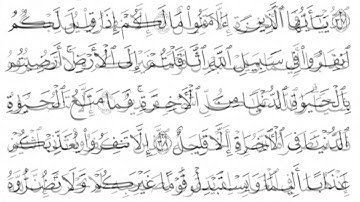 ٣٧ يَٰٓأَيُّهَا ٱلَّذِينَ ءَامَنُوا۟ مَا لَكُمْ إِذَا قِيلَ لَكُمُ
ٱنفِرُوا۟ فِى سَبِيلِ ٱللَّهِ ٱثَّاقَلْتُمْ إِلَى ٱلْأَرْضِ ۚ أَرَضِيتُم
بِٱلْحَيَوٰةِ ٱلدُّنْيَا مِنَ ٱلْـَٔاخِرَةِ ۚ فَمَا مَتَٰعُ ٱلْحَيَوٰةِ
ٱلدُّنْيَا فِى ٱلْـَٔاخِرَةِ إِلَّا قَلِيلٌ ٣٨ إِلَّا تَنفِرُوا۟ يُعَذِّبْكُمْ
عَذَابًا أَلِيمًا وَيَسْتَبْدِلْ قَوْمًا غَيْرَكُمْ وَلَا تَضُرُّوهُ